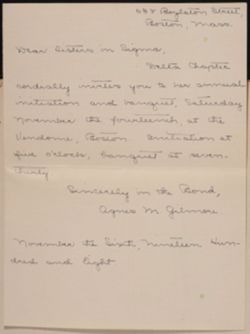 688 Boylston Street
Boston, Mass.
Dear Sisters in Sigma,
Delta Chapter
cordially invites you to her annual
initiation and banquet, Saturday
November the fourteenth at the
Vendome, Boston. Initiation at
five o'clock, banquet at seven-
thirty
Sincerely in the Bond,
Agnes M Gilmore
November the sixth, nineteen hun-
dred and eight